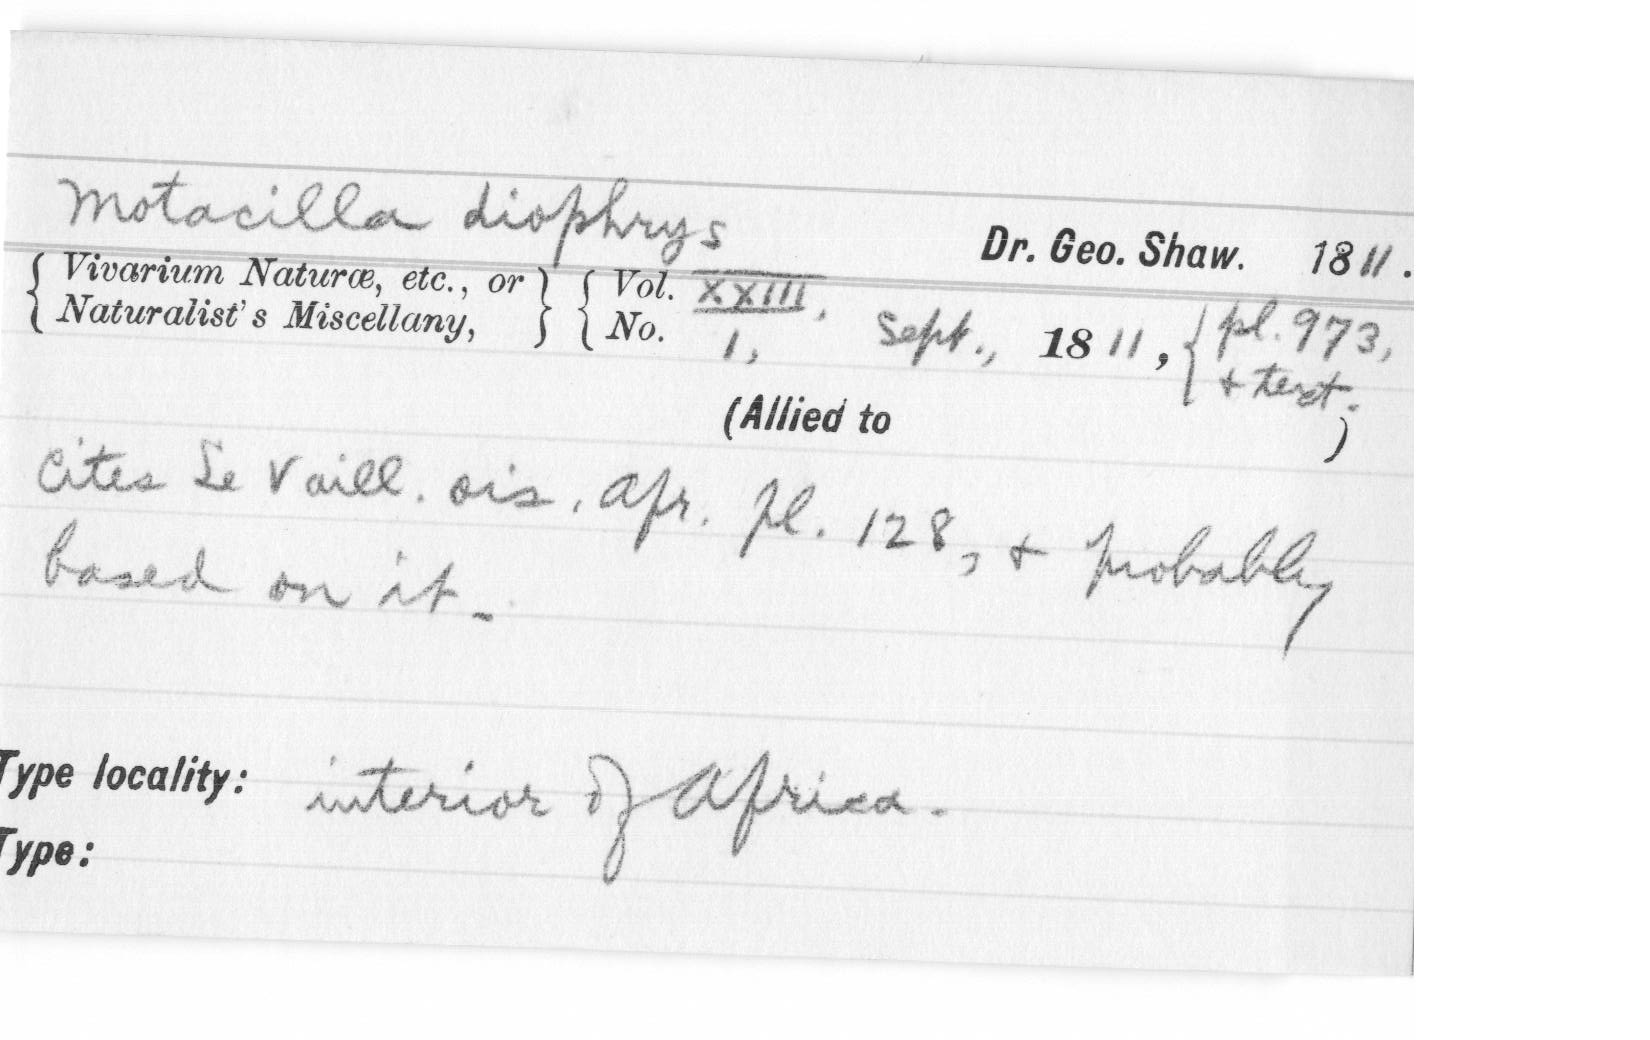 Motacilla diophrys
Dr. Geo. Shaw. 1811.
{ Vivarium Naturæ, etc., or } { Vol. XXIII, Sept., 1811, { pl. 973,
{ Naturalist's Miscellany, } { No. 1, + text.
(Allied to )
Cites Le Vaill. ois. Afr. pl. 128, + probably
based on it.
Type locality: interior of Africa.
Type: